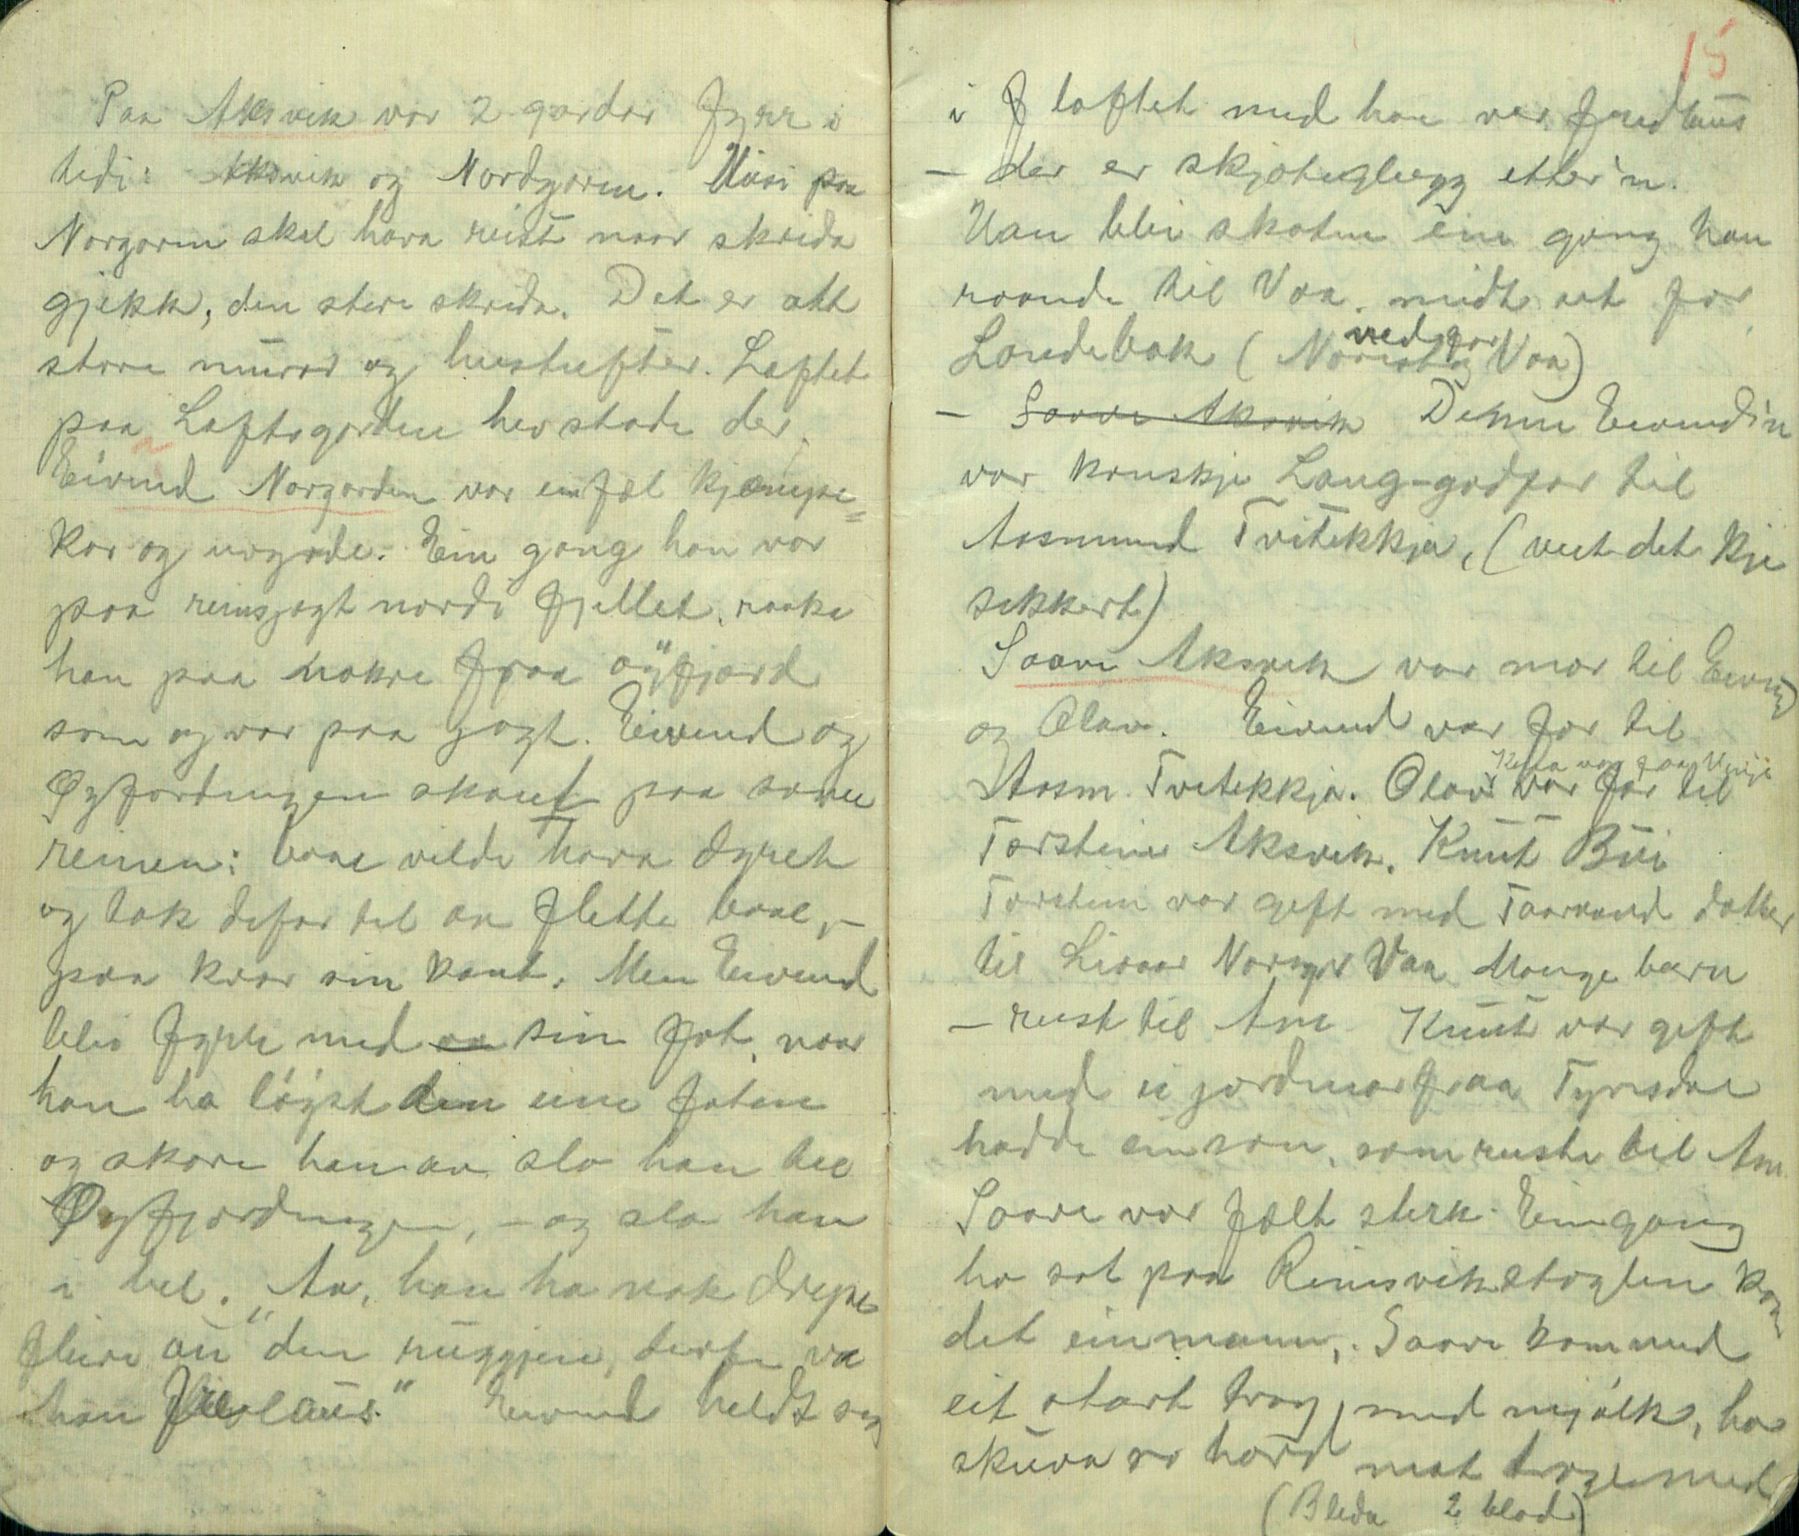 Paa Aksvik var 2 gardar fyrr i
tidi: Aksvik og Nordgaren. Husi paa
Norgaren skal hava reist naar skrida
gjekk, den store skrida. Det er att
store murar og hustufter. Loftet
paa Loftsgarden hev stade der.
Eivind Norgarden var ein fæl kjæmpe=
kar og uvyrde. Ein gong han var
paa reinsjagt nordi fjellet, raaka
han paa nokre fraa øyfjord
som og var paa jagt. Eivind og
Øyfjordingen skaut paa same
reinen: baae vilde hava dyret
og tok difor til aa flette baae, –
paa kvar sin kant. Men Eivind
blei fyrr med sin fot, naar
han ha løyst den eine foten
og skore han av slo han til
Øyfjordingen, – og slo han
i hel. "Aa, han ha nok drepe
fleire au den ruggjen, derfor va
han fredlaus." Eivind heldt seg
15
i loftet med han var fredlaus
– der er skjoteglugg etter'n.
Han blei skoten ein gong han
roande til Vaa, midt ut for
Loudebak (Norigard Vaa)
ned
– Saave Aksvik Denne Eivind'n
var kanskje Lang-godfar til
Aasmund Tvitekkja, (veit det kje
sikkert)
Saave Aksvik var mor til Eivind
og Olav. Eivind var far til
Kona var fraa
Aasm. Tvitekkja. Olav var far til
Torstein Aksvik, Knut Bui
Torstein var gift med Taarand dotter
til Livaar Vaa Mange barn
– reist til Am Knut var gift
med ei jordmor fraa Tyrisdal
hadde ein son, som reiste til Am.
Saave var fælt sterk. Ein gong
ho sat paa Reinsvikstoylen kom
det ein mann,. Saave kom med
eit stort trog med mjølk, ho
skuva so hard mot troge med
(Bleda 2 blad)